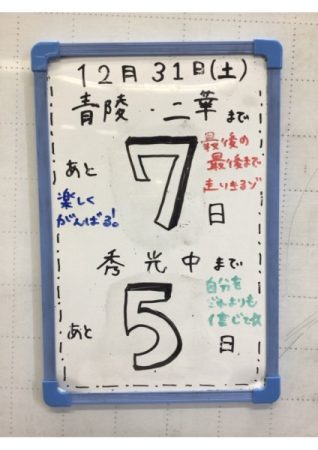 12月31日(土)
青陵・二華まで
あと7日
最後の
最後まで
走りきるゾ
楽しく
がんばる!
秀光中まで
あと5日
自分を
だれよりも
信じて